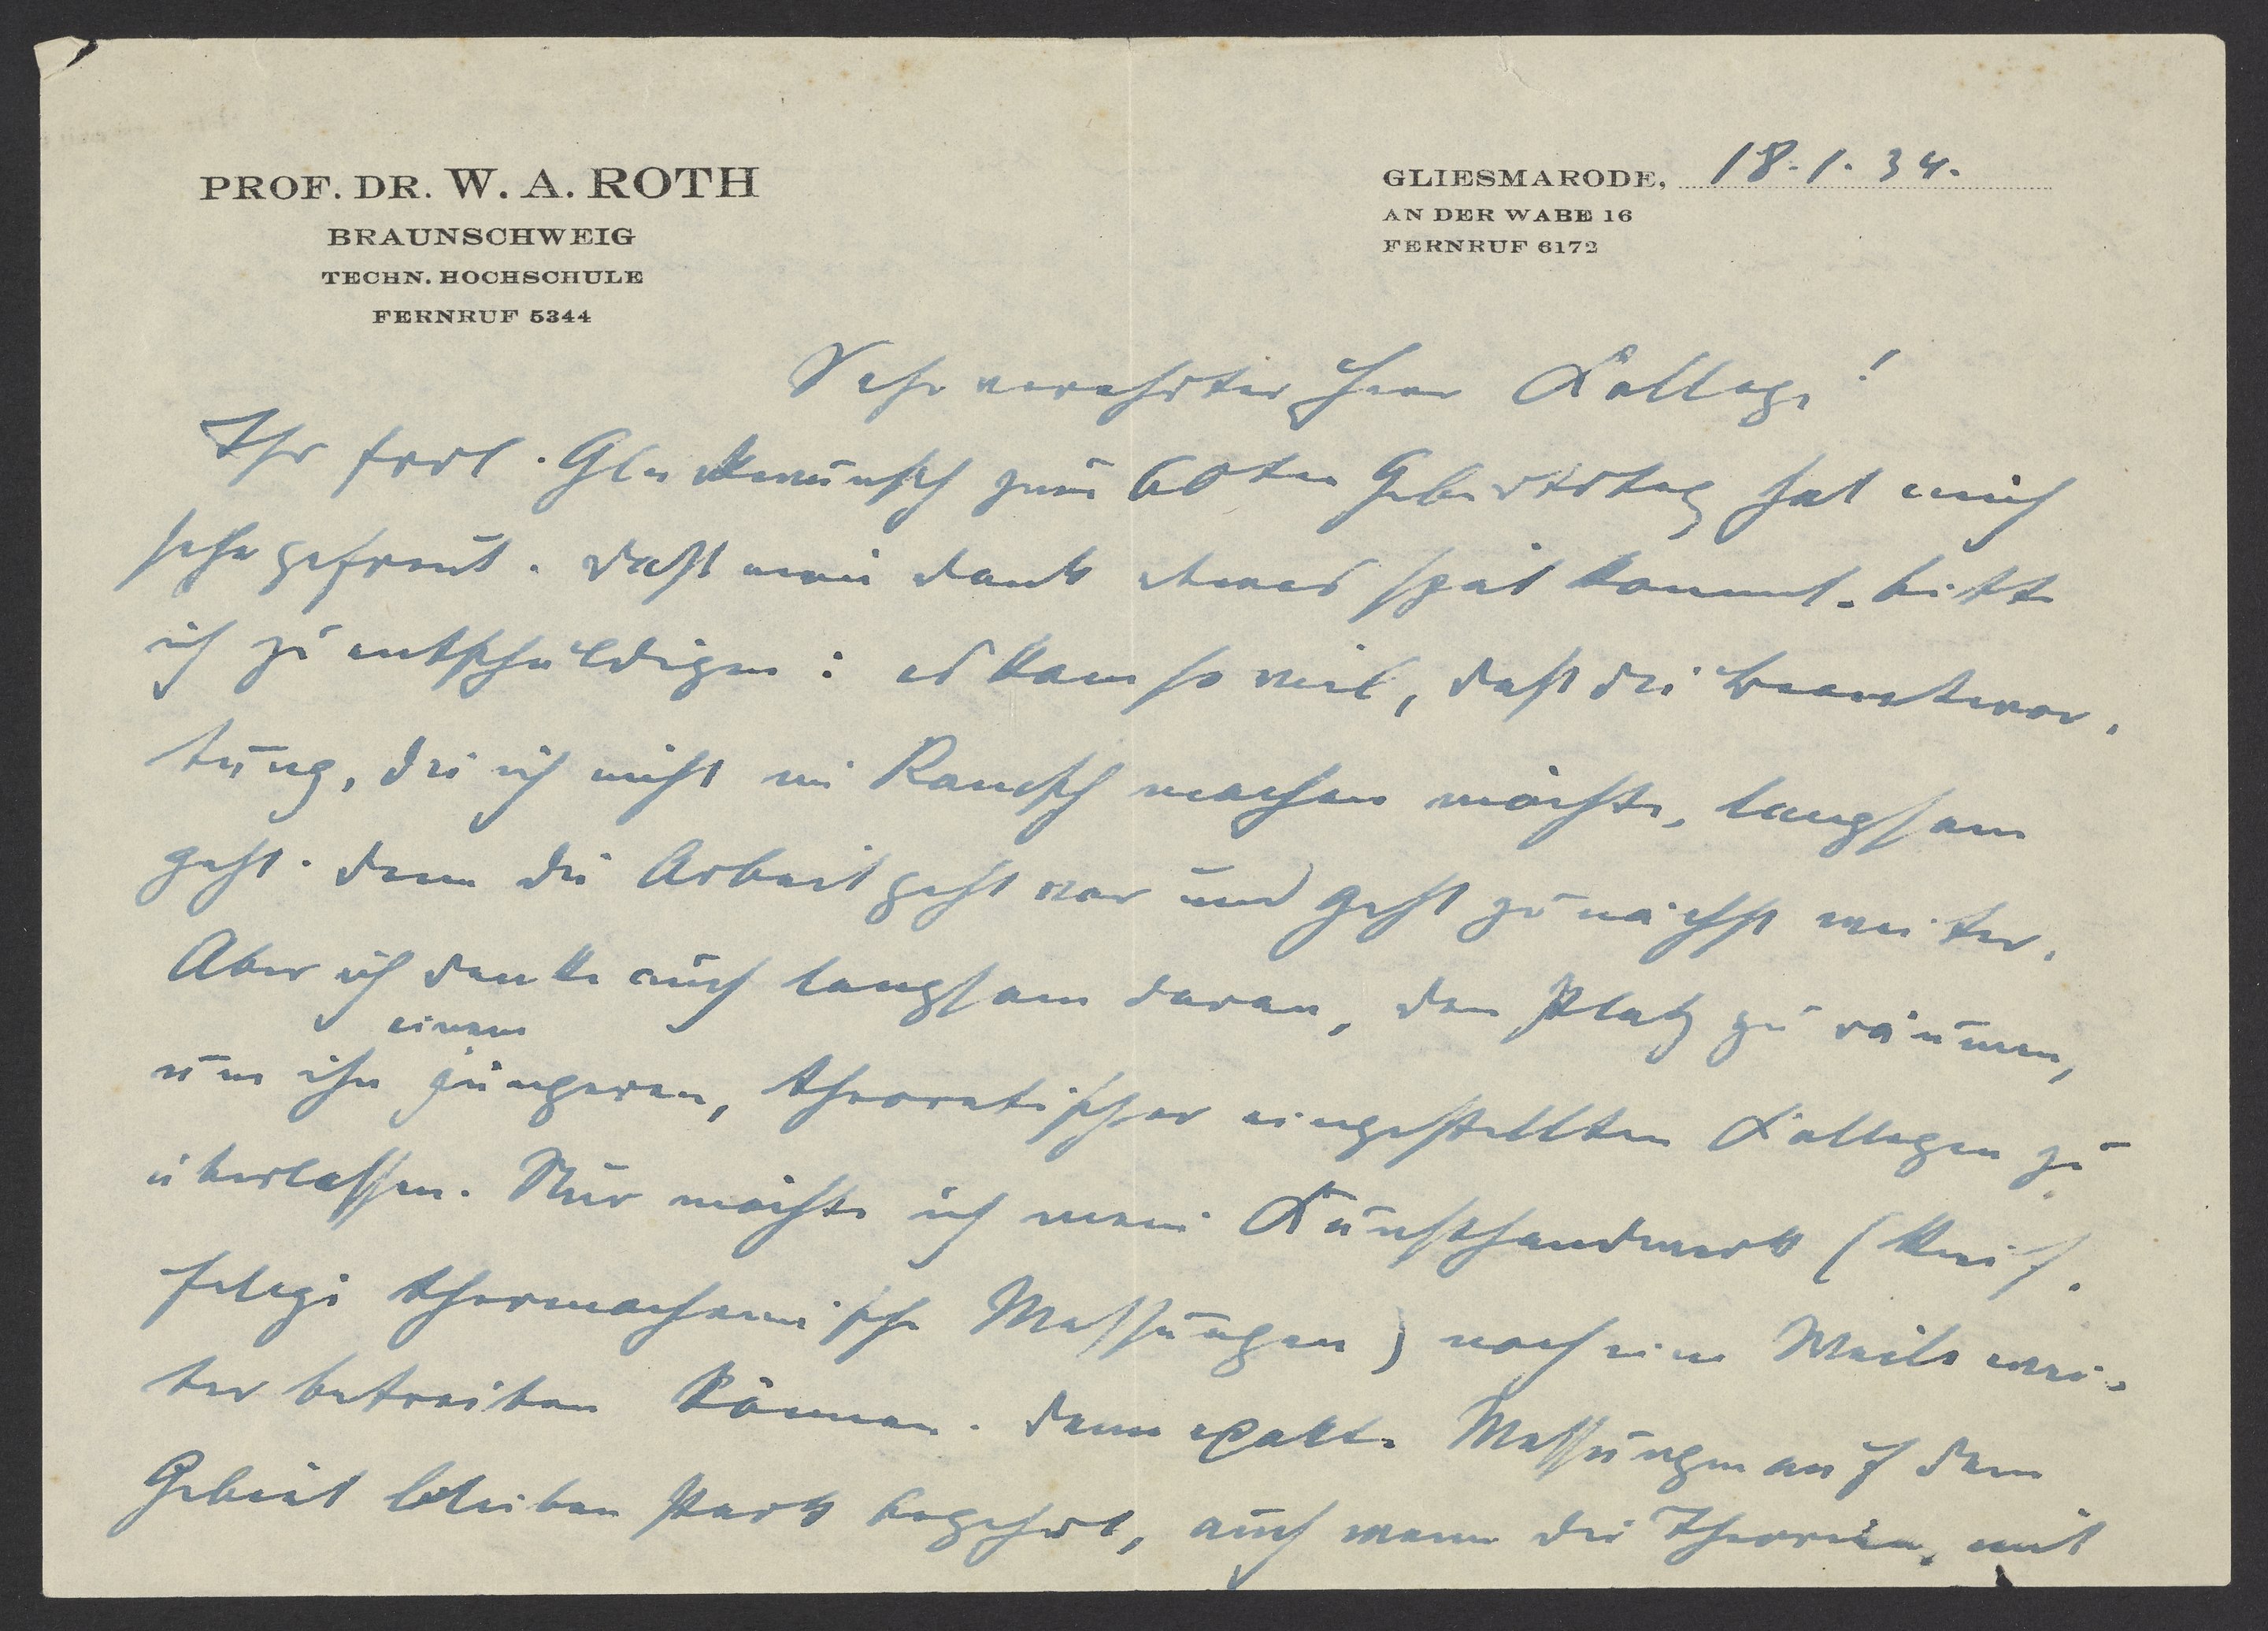 PROF. DR. W. A. ROTH
BRAUNSCHWEIG
TECHN. HOCHSCHULE
FERNRUF 5344
GLIESMARODE, 18.1.34.
AN DER WABE 16
FERNRUF 6172
Sehr verehrter Herr Kollege!
Ihr frdl. Glückwunsch zum 60ten Geburtstag hat mich
sehr gefreut. Daß mein Dank etwas spät kommt, bitte
ich zu entschuldigen: es kam so viel, daß die Beantwor-
tung, die ich nicht in Ramsch machen möchte, langsam
geht. Denn die Arbeit geht vor und geht zunächst weiter.
Aber ich denke auch langsam daran, den Platz zu räumen,
um ihn einem jüngeren, theoretischer eingestellten Kollegen zu
überlassen. Nur möchte ich mein Kunsthandwerk (kniff-
lige thermochemische Messungen) noch eine Weile wei-
ter betreiben können. Denn exakte Messungen auf dem
Gebiet bleiben stark begehrt, auch wenn die Theorien, mit